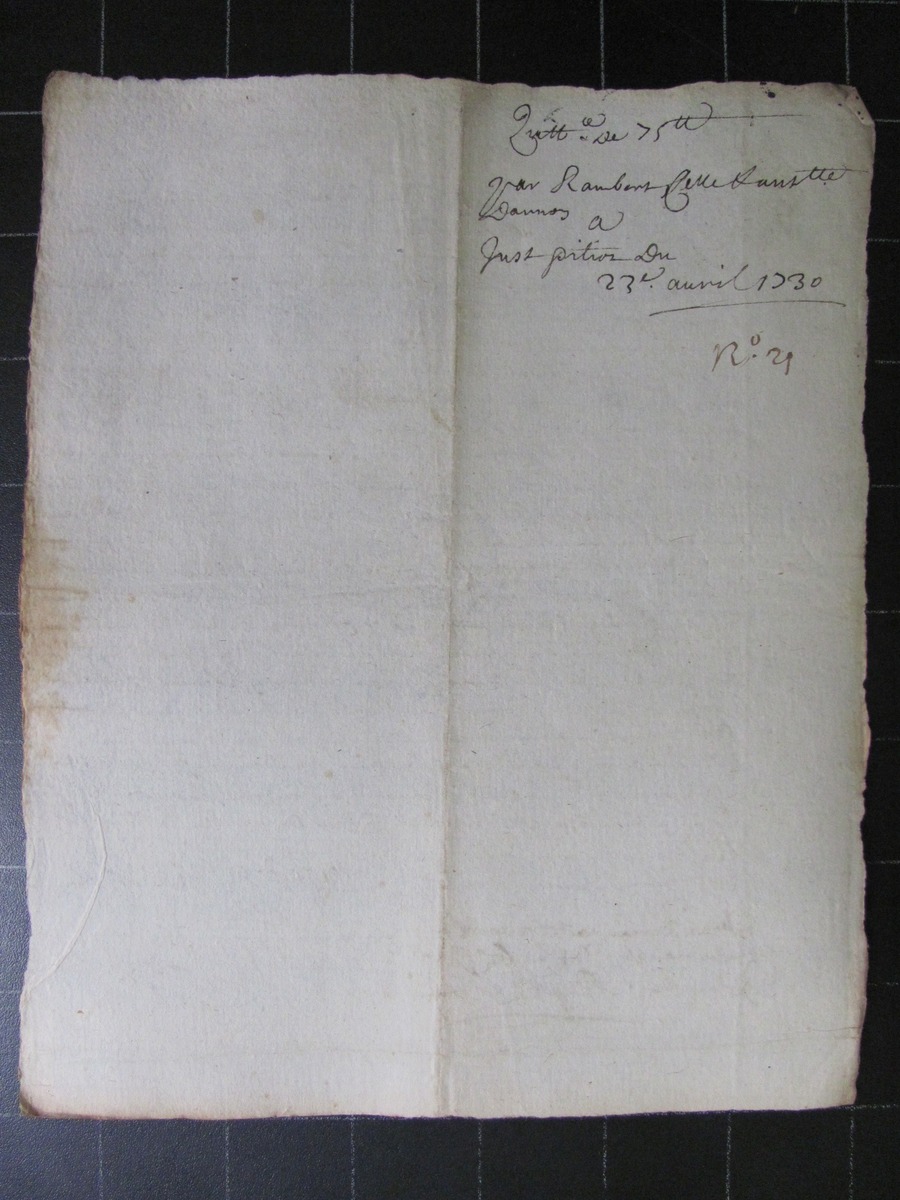 Quitt.ce De 75tt
par Rambert Celle
Dannos
a
Just pitioz Du
23e. avril 1730
No. 29